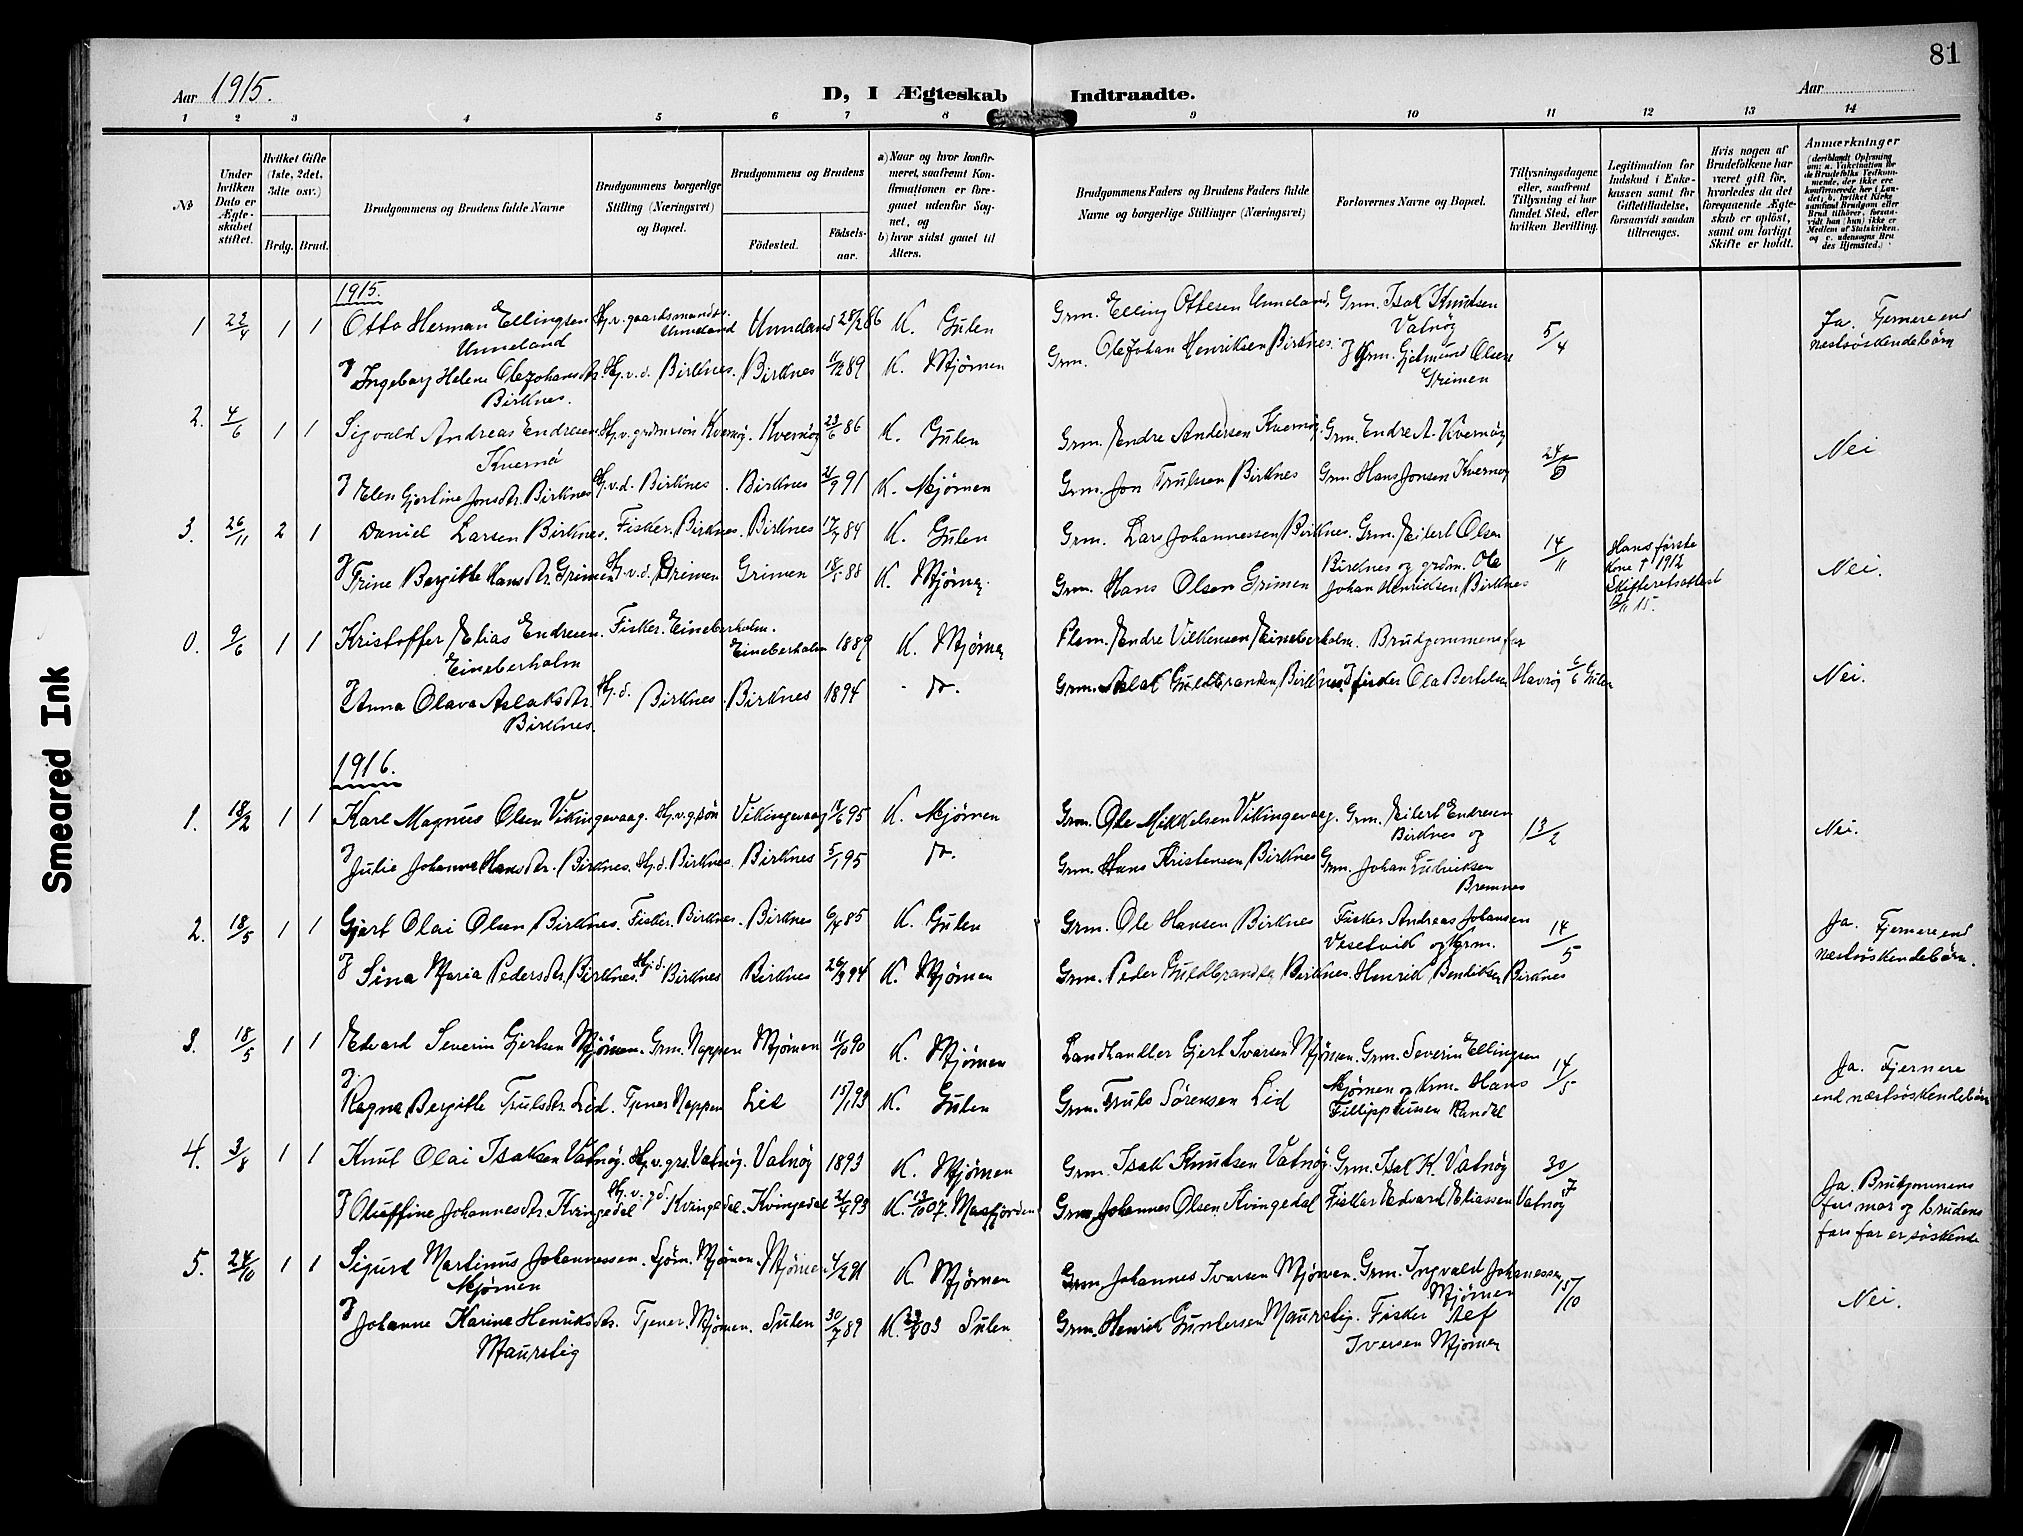 81
Aar 1915.
D, I Ægteskab Indtraadte.
Aar
1 2 3 4 5 6 7 8 9 10 11 12 13 14
No
Under hvilken Dato er Ægteskabet stiftet.
Hvilket Gifte (1ste, 2det, 3die osv.)
Brdg. Brud.
Brudgommens og Brudens fulde Navne
Brudgommens borgerlige Stilling (Næringsvei) og Bopæl.
Brudgommens og Brudens
Födested. Födselsaar.
a) Naar og hvor konfirmeret, saafremt Konfirmationen er foregaaet udenfor Sognet, og
b) hvor sidst gaaet til Alters.
Brudgommens Faders og Brudens Faders fulde Navne og borgerlige Stillinger (Næringsvei)
Forlovernes Navne og Bopæl.
Tillysningsdagene eller, saafremt Tillysning ei har fundet Sted, efter hvilken Bevilling.
Legitimation for Indskud i Enkekassen samt for Giftetilladelse, forsaavidt saadan tiltrænges.
Hvis nogen af Brudefolkene har været gift för, hvorledes da det foregaaende Ægteskab er oplöst, samt om lovligt Skifte er holdt.
Anmærkninger
1915.
1 22/4 1 1 Otto Herman Ellingsen Unneland Hj.v. gaardsmands. Unneland Unneland 28/2 86 K. Gulen Grm. Elling Ottesen Unneland. Grm. Isak Knudsen Vatnöy 5/4 Ja. Fjernere end næstsöskendebörn
Ingeborg Helene Olejohansdtr. Birknes. Hj.v.d. Birknes. Birknes 11/12 89 K. Mjömen Grm. OleJohan Henriksen Birknes. Grm. Gjetmund Olsen Grimen
2. 4/6 1 1 Sigvald Andreas Endresen Kvernö Hj.v. grdmssön Kvernöy. Kvernöy 23/6 86 K. Gulen Grm. Endre Andersen Kvernöy. Grm. Endre A. Kvernöy 24/5 Nei
Elen Gjertine Jonsdtr. Birknes Hj.v.d. Birknes. Birknes 21/9 91 K. Mjömen Grm. Jon Trulsen Birknes Grm. Hans Jonsen Kvernöy
3. 26/11 2 1 Daniel Larsen Birknes. Fisker. Birknes. Birknes 17/7 84 K. Gulen Grm. Lars Johannessen Birknes. Grm. Eilert Olsen Birknes og grdm. Ole Johan Henriksen Birknes 14/11 Hans förste Kone † 1912 Skifteretsattest 12/11 15. Nei.
Trine Bergitte Hansdtr. Grimen Hj.v.d. Grimen Grimen 18/5 88 K. Mjömen. Grm. Hans Olsen Grimen
0. 9/6 1 1 Kristoffer Elias Endresen Eineberholm Fisker. Eineberholm. Eineberholm 1889 K. Mjömen Plsm. Endre Vilkensen Eineberholm. Brudgommens far Nei.
Anna Olava Aslaksdtr. Birknes. Hj.d. Birknes. Birknes 1894 do. Grm. Aslak Guldbrandsen, Birknes. Fisker Ola Bertelsen Havröy 6/6 Gulen
1916.
1. 18/2 1 1 Karl Magnus Olsen Vikingevaag. Hj.v.g.sön Vikingevaag 11/6 95 K. Mjömen Grm. Ole Mikkelsen Vikingevaag. Grm. Eilert Endresen Birknes og 13/2 Nei.
Julie Johanna Hansdtr. Birknes. Hj.d. Birknes. Birknes 5/1 95 do. Grm. Hans Kristensen Birknes Grm. Johan Ludviksen Bremnes
2. 18/5 1 1 Gjert Olai Olsen Birknes. Fisker. Birknes. Birknes 6/4 85 K. Gulen Grm. Ole Hansen Birknes Fisker Andreas Johansen Vesetvik og Grm. 14/5 Ja. Fjernere end næstsöskendebörn.
Sina Maria Pedersdtr. Birknes. Hj.d. Birknes Birknes 26/3 94 K. Mjömen Grm. Peder Guldbrandsen Birknes. Henrik Bendiksen Birknes
3. 18/5 1 1 Edvard Severin Gjertsen Mjömen. Grm. Nappen Mjömen 11/10 90 K. Mjömen Landhandler Gjert Ivarsen Mjömen. Grm. Severin Ellingsen Mjömen og Krm. Hans Fillippusen Randal 14/5 Ja. Fjernere end næstsöskendebörn
Ragna Bergitte Trulsdtr. Lid. Tjener Nappen Lid 15/1 93 K. Gulen Grm. Truls Sörensen Lid
4. 3/8 1 1 Knut Olai Isaksen Vatnöy. Hj.v.grs. Vatnöy. Vatnöy 1893 K. Mjömen Grm. Isak Knutsen Vatnöy. Grm. Isak K. Vatnöy 30/7 Ja. Brudgommens fars mor og brudens fars far er söskende
Oluffine Johannesdtr. Kvingedal Hj.v.g.d. Kvingedal. Kvingedal 21/4 93 K. 13/10 07. Masfjorden Grm. Johannes Olsen Kvingedal Fisker Edvard Eliassen Vatnöy
5. 24/10 1 1 Sigurd Martinus Johannessen Mjömen Sjöm. Mjömen. Mjömen 4/2 91 K. Mjömen Grm. Johannes Ivarsen Mjömen. Grm. Ingvald Johanessen Mjömen 15/10 Nei.
Johanne Karina Henriksdtr. Maurstig Tjener. Mjömen. Sulen 30/7 89 Sulen Grm. Henrik Guntersen Maurstig. Fisker Iversen Mjömen
Smeared Ink